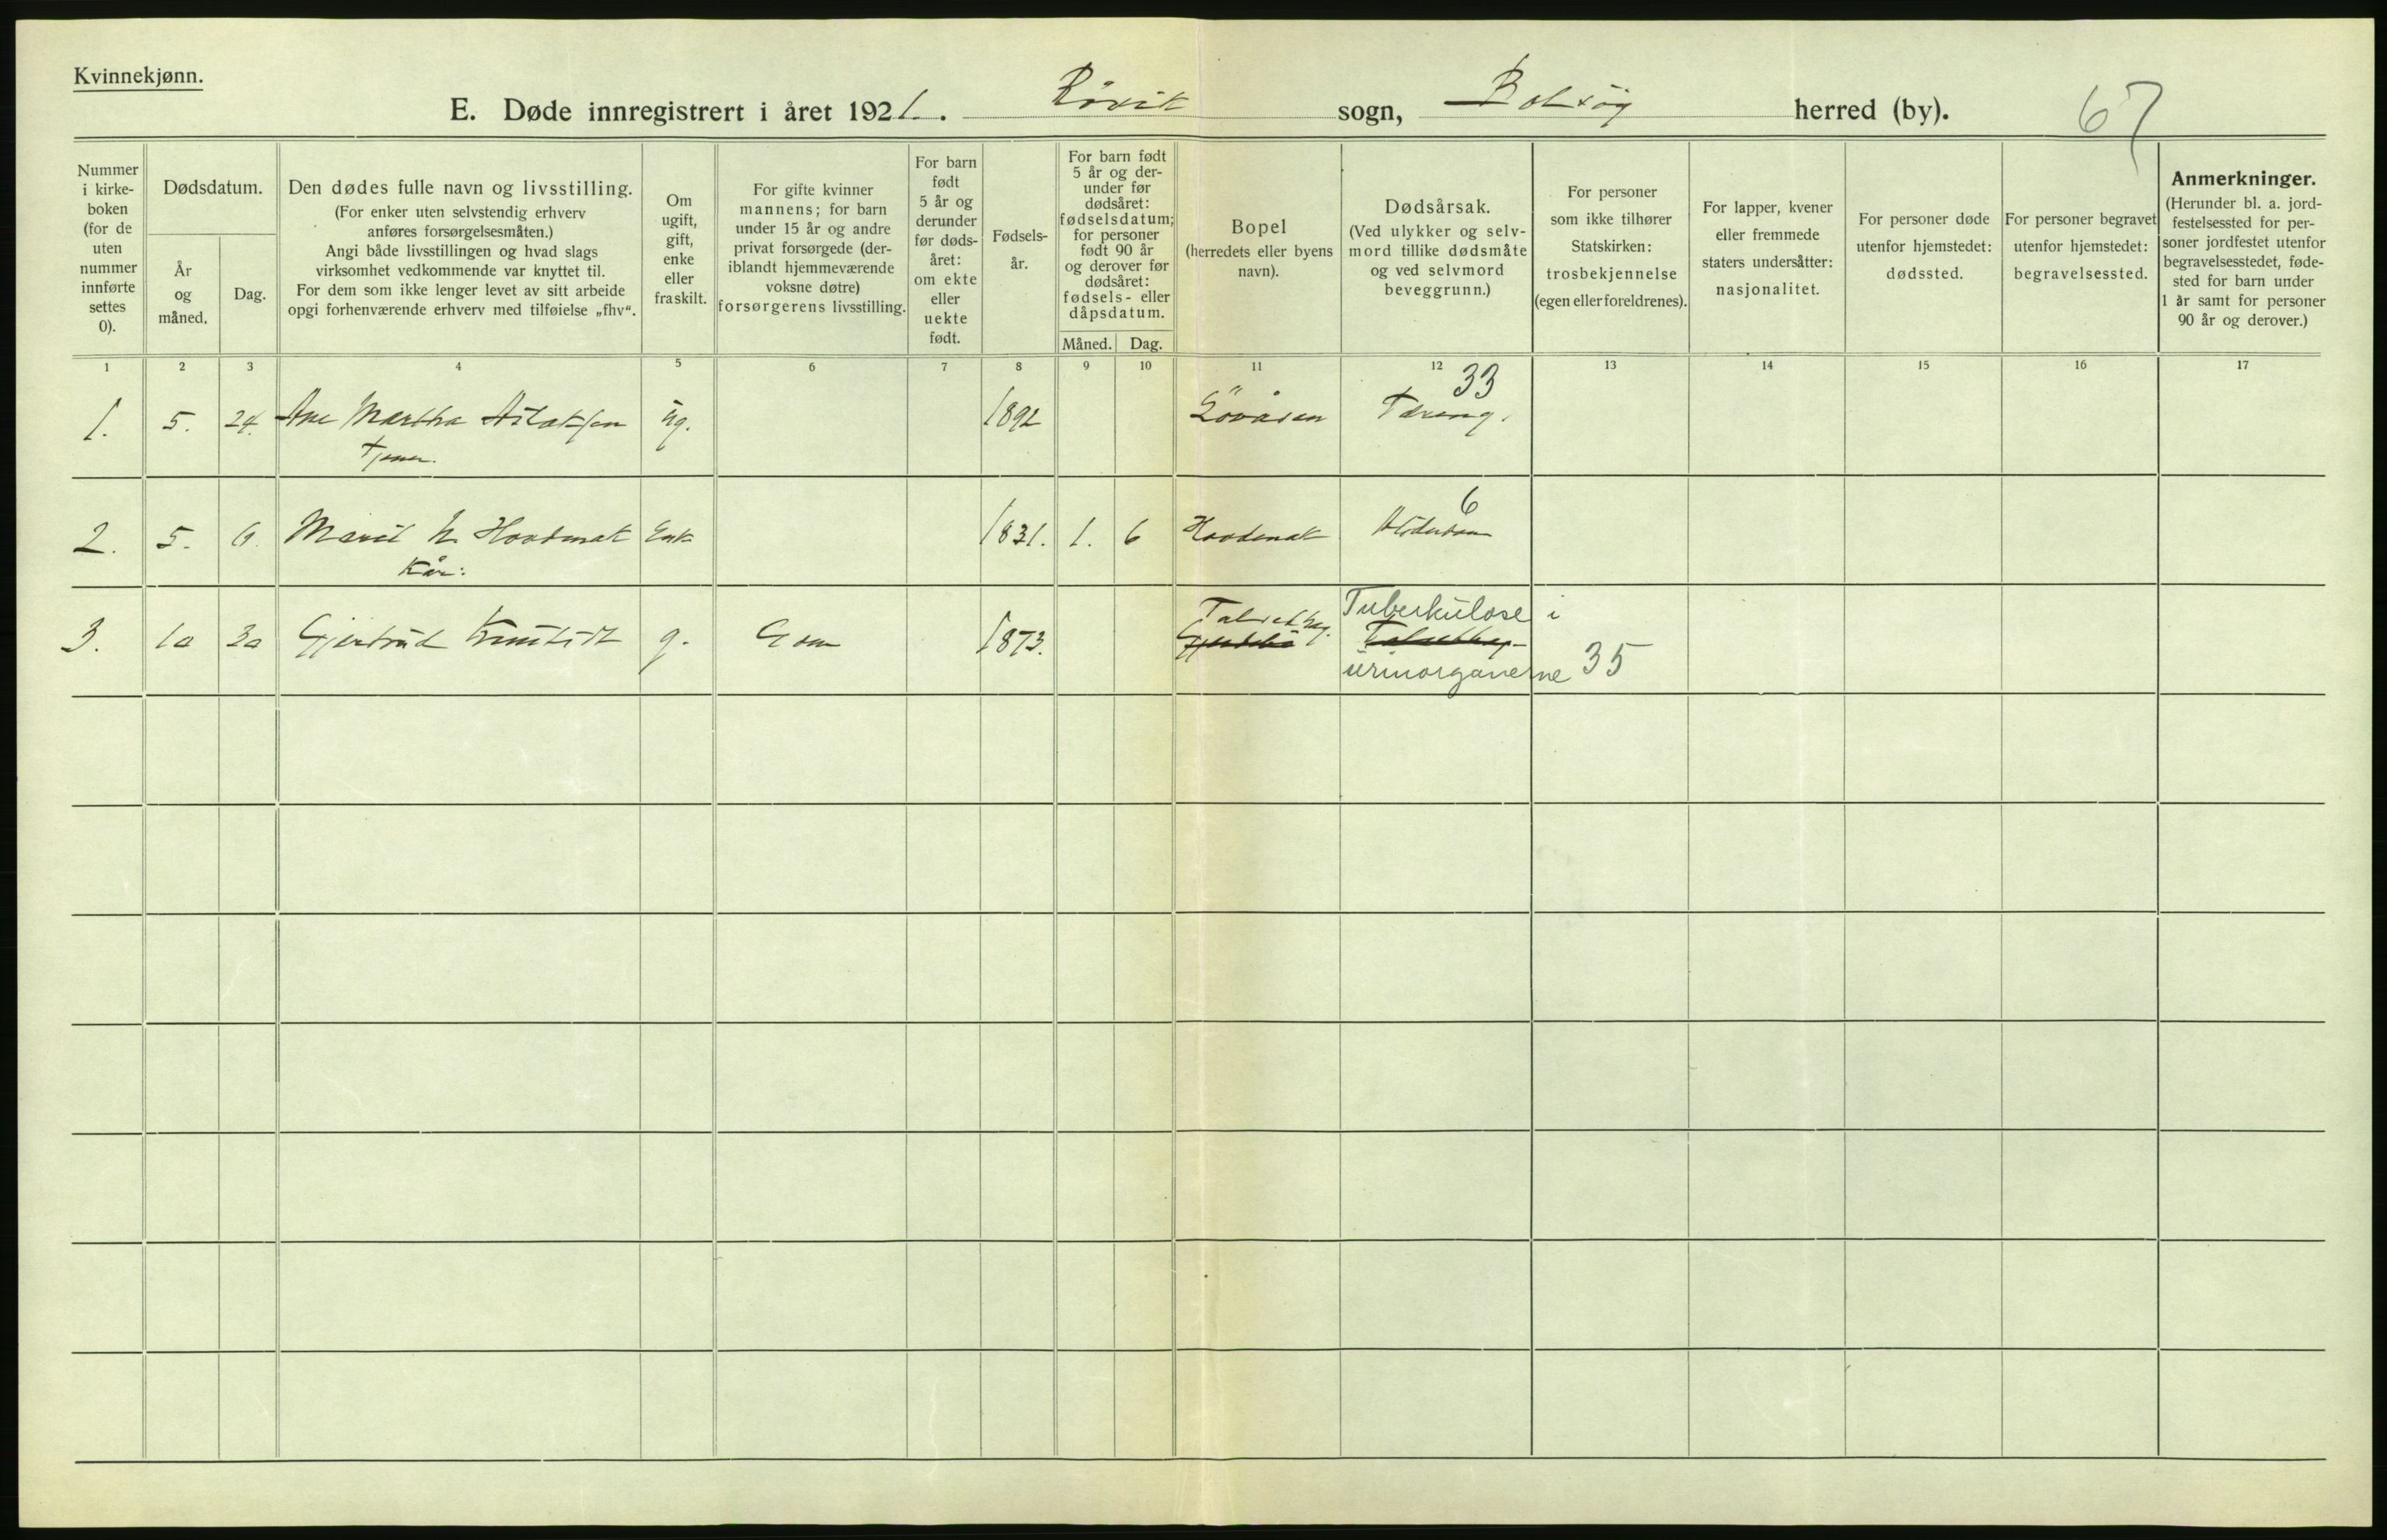 Kvinnekjønn.
E. Døde innregistrert i året 1921. Røvik sogn, Bolsøy herred (by). 67
Nummer i kirke- boken (for de uten nummer innførte settes 0).
Dødsdatum.
År og måned.
Dag.
Den dødes fulle navn og livsstilling.
(For enker uten selvstendig erhverv
anføres forsørgelsesmåten.)
Angi både livsstillingen og hvad slags
virksomhet vedkommende var knyttet til.
For dem som ikke lenger levet av sitt arbeide
opgi forhenværende erhverv med tilføielse „fhv“.
Om ugift, gift, enke eller fraskilt.
For gifte kvinner
mannens; for barn
under 15 år og andre
privat forsørgede (der-
iblandt hjemmeværende
voksne døtre)
forsørgerens livsstilling.
For barn født 5 år og derunder før døds- året: om ekte eller uekte født.
Fødsels- år.
For barn født
5 år og der-
under før
dødsåret:
fødselsdatum;
for personer
født 90 år
og derover før
dødsåret:
fødsels- eller
dåpsdatum.
Måned. Dag.
Bopel
(herredets eller byens
navn).
Dødsårsak.
(Ved ulykker og selv-
mord tillike dødsmåte
og ved selvmord
beveggrunn.)
For personer
som ikke tilhører
Statskirken:
trosbekjennelse
(egen eller foreldrenes).
For lapper, kvener
eller fremmede
staters undersåtter:
nasjonalitet.
For personer døde
utenfor hjemstedet:
dødssted.
For personer begravet
utenfor hjemstedet:
begravelsessted.
Anmerkninger.
(Herunder bl. a. jord-
festelsessted for per-
soner jordfestet utenfor
begravelsesstedet, føde-
sted for barn under
1 år samt for personer
90 år og derover.)
1 2 3 4 5 6 7 8 9 10 11 12 13 14 15 16 17
33
1. 5. 24. Ane Martha Aslaksen ug. 1892 Løvåsen Tæring.
Tjener.
6
2. 5. Marit Hovdenak Enk 1831. 1. 6 Hovdenak Alderdom
Kår:
Talsethag. Tuberkulose i
3. 10 30 Gjertrud g. Gom 1873. Talsethag.
urinorganerne 35